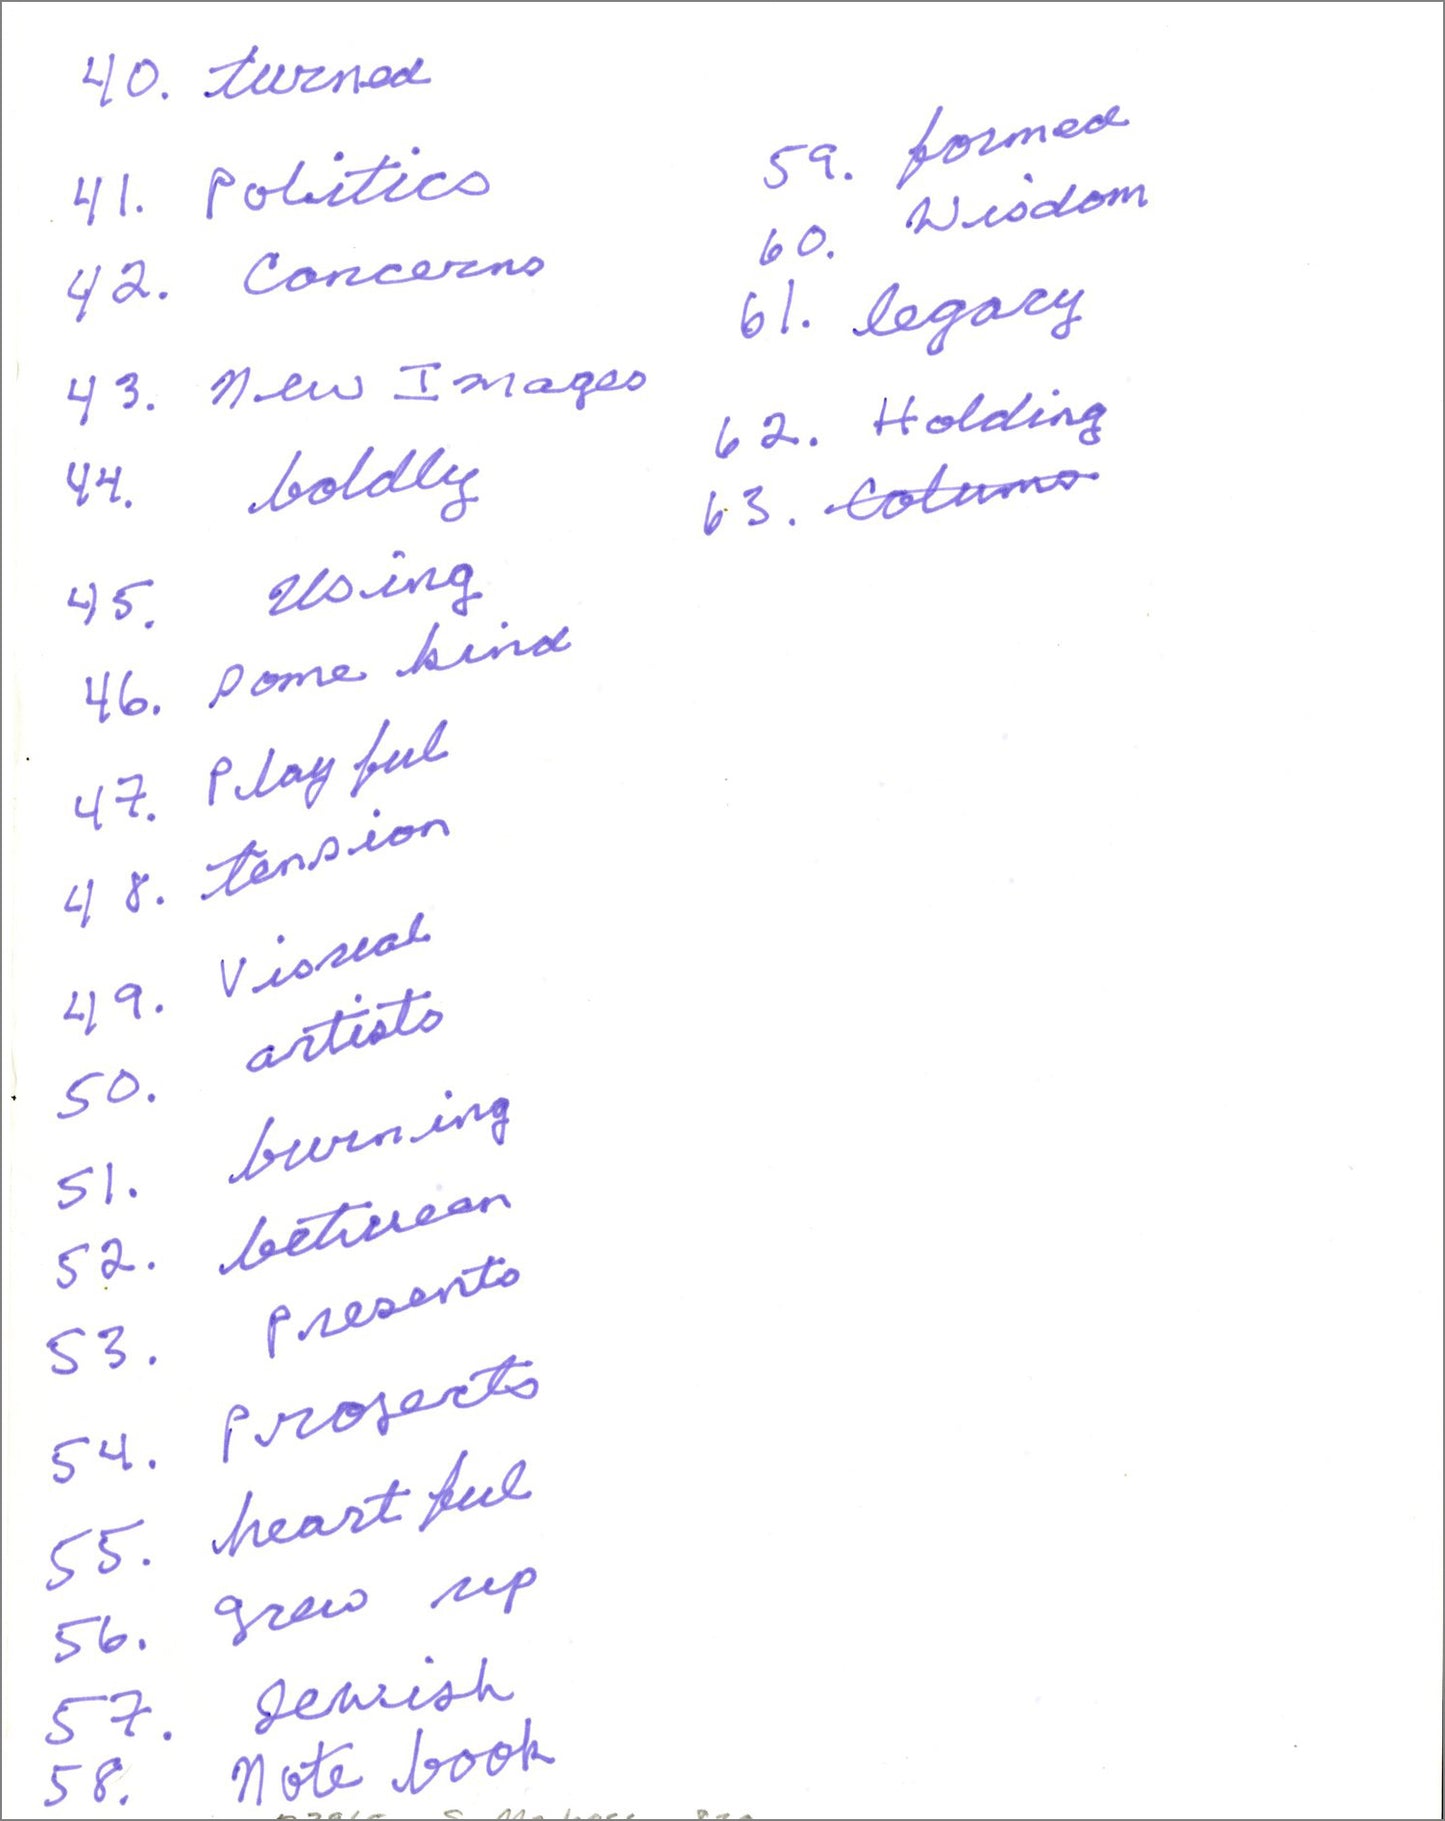 40. turned
41. Politics
42. Concerns
43. New Images
44. boldly
45. Using
46. Some kind
47. Playful
48. tension
49. Visual
50. artists
51. burning
52. between
53. Presents
54. Projects
55. heartful
56. grew up
57. Jewish
58. Note book
59. formed
60. Wisdom
61. legacy
62. Holding
63. Colums